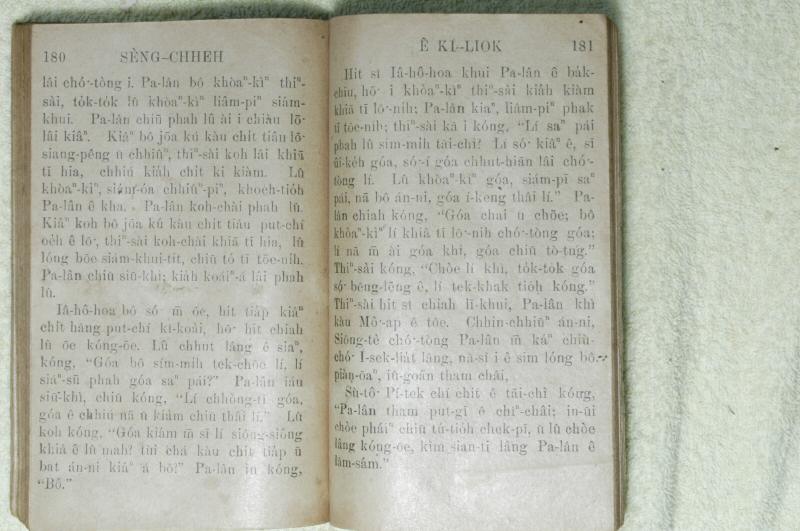 180 SÈNG-CHHEH
lâi chó͘-tòng i. Pa-lân bô khòaⁿ-kìⁿ thiⁿ-
sài, to̍k-to̍k lû khòaⁿ-kìⁿ liâm-piⁿ siám-
khui. Pa-lân chiū phah lû ài i chiàu lō͘
lâi kiâⁿ. Kiâⁿ bô jōa kú kàu chi̍t tiâu lō͘
siang-pêng ū chhiûⁿ, thiⁿ-sài koh lâi khiā
tī hia, chhiú kia̍h chi̍t ki kiàm. Lû
khòaⁿ-kìⁿ, siám-óa chhiûⁿ-piⁿ, khoeh-tio̍h
Pa-lân ê kha. Pa-lân koh-chài phah lû.
Kiâⁿ koh bô jōa kú kàu chi̍t tiâu put-chí
oe̍h ê lō͘, thiⁿ-sài koh-chài khiā tī hia, lû
lóng bōe siám-khui-tit, chiū tó tī tōe-ni̍h.
Pa-lân chiū siū-khì; kia̍h koáiⁿ-á lâi phah
lû.
Iâ-hô-hoa bô só͘ m̄ ōe, hit tia̍p kiâⁿ
chi̍t hāng put-chí kî-koài, hō͘ hit chiah
lû ōe kóng-ōe. Lû chhut lâng ê siaⁿ,
kóng, “Góa bô sím-mih tek-chōe lí, lí
siáⁿ-sū phah góa saⁿ pái?” Pa-lân iáu
siū-khì, chiū kóng, “Lí chhòng-tī góa,
góa ê chhiú nā ū kiàm chiū thâi lí.” Lû
koh kóng, “Góa kiám m̄ sī lí siông-siông
khiâ ê lû mah? tùi chá kàu chit tia̍p ū
bat án-ni kiâⁿ á bô?” Pa-lân ìn kóng,
“Bô.”
Ê KÌ-LIOK 181
Hit sî Iâ-hô-hoa khui Pa-lân ê ba̍k-
chiu, hō͘ i khòaⁿ-kìⁿ thiⁿ-sài kia̍h kiàm
khiā tī lō͘-ni̍h; Pa-lân kiaⁿ, liâm-piⁿ phak
tī tōe-ni̍h; thiⁿ-sài kā i kóng, “Lí saⁿ pái
phah lû sím-mih tāi-chì? Lí só͘ kiâⁿ ê, sī
ûi-ke̍h góa, só͘-í góa chhut-hiān lâi chó͘-
tòng lí. Lû khòaⁿ-kìⁿ góa, siám-pī saⁿ
pái, nā bô án-ni, góa í-keng thâi lí.” Pa-
lân chiah kóng, “Góa chai ū chōe; bô
khòaⁿ-kìⁿ lí khiā tī lō͘-ni̍h chó͘-tòng góa;
lí nā m̄ ài góa khì, góa chiū tò-tńg.”
Thiⁿ-sài kóng, “Chòe lí khì, to̍k-to̍k góa
só͘ bēng-lēng ê, lí tek-khak tio̍h kóng.”
Thiⁿ-sài hit sî chiah lī-khui, Pa-lân khì
kàu Mô͘-ap ê tōe. Chhin-chhiūⁿ án-ni,
Siōng-tè chó͘-tòng Pa-lân m̄ káⁿ chiù-
chó͘ Í-sek-lia̍t lâng, nā-sī i ê sim lóng bô
piàn-ōaⁿ, iû-goân tham châi.
Sù-tô͘ Pí-tek chí chit ê tāi-chì kóng,
“Pa-lân tham put-gī ê chîⁿ-châi; in-ūi
chòe pháiⁿ chiū tú-tio̍h chek-pī, ū lû chòe
lâng kóng-ōe, kìm sian-ti lâng Pa-lân ê
lām-sám.”